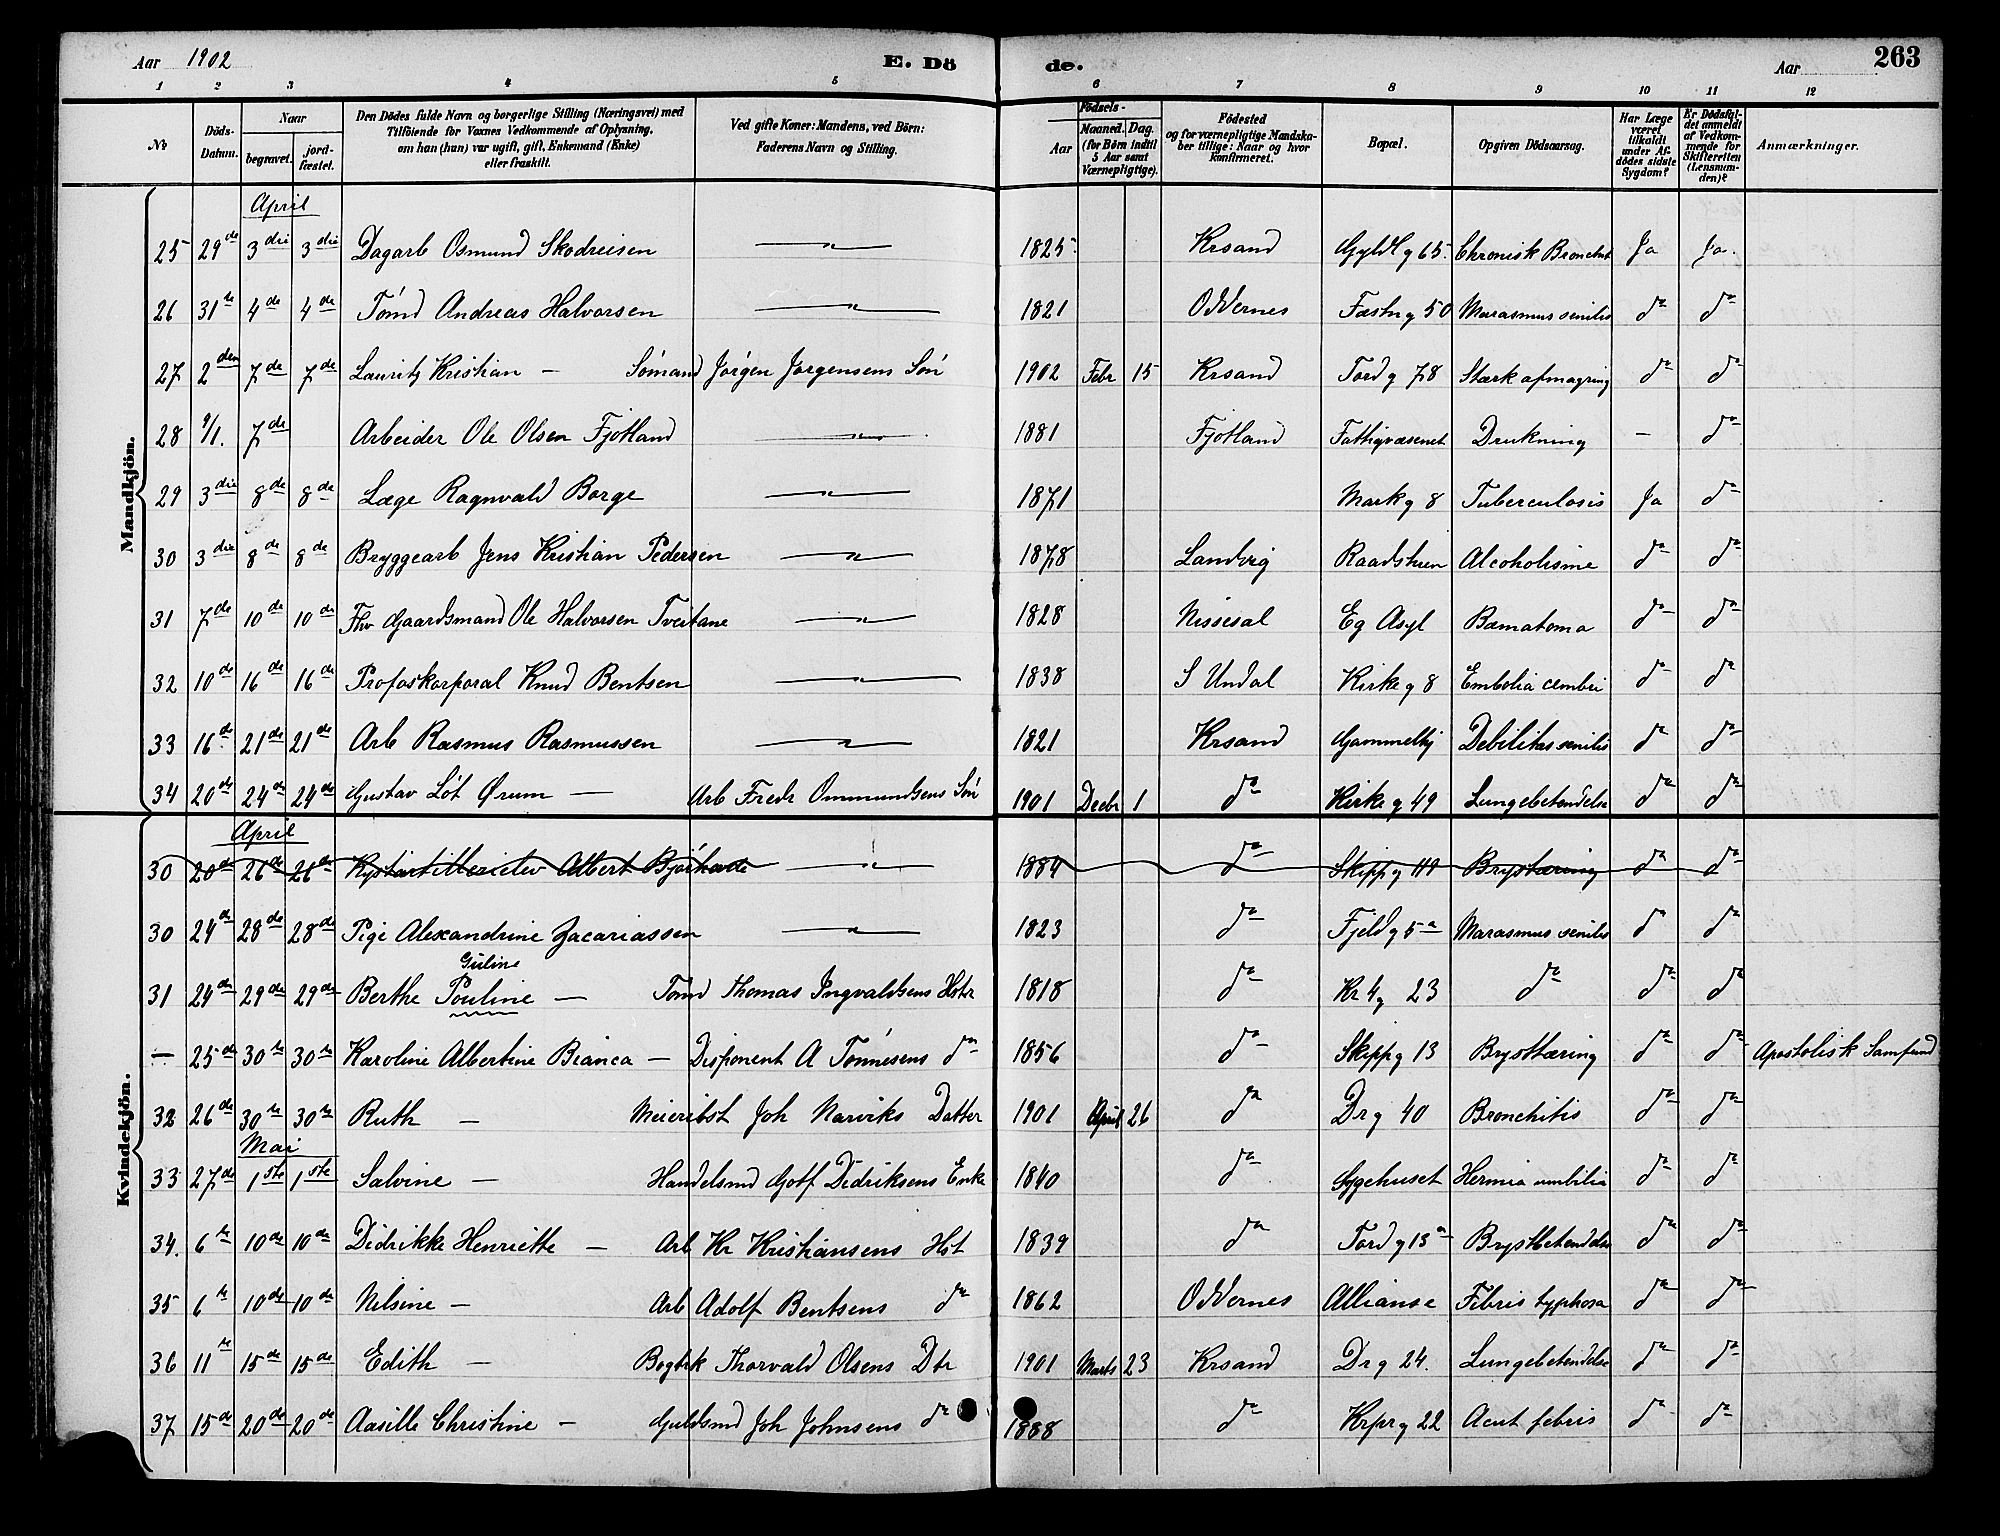 Aar 1902 E. Dö de. Aar 263
1 2 3 4 5 6 7 8 9 10 11 12
No Döds-Datum. Naar begravet. jordfæstet. Den Dödes fulde Navn og borgerlige Stilling (Næringsvei) med Tilföiende for Voxnes Vedkommende af Oplysning, om han (hun) var ugift, gift, Enkemand (Enke) eller fraskilt. Ved gifte Koner: Mandens, ved Börn: Faderens Navn og Stilling. Födsels- Aar Maaned. Dag. (for Börn indtil 5 Aar samt Værnepligtige). Födested og for værnepligtige Mandskaber tillige: Naar og hvor konfirmeret. Bopæl. Opgiven Dödsaarsag. Har Læge været tilkaldt under Afdödes sidste Sygdom? Er Dödsfaldet anmeldt af Vedkommende for Skifteretten (Lensmanden)? Anmærkninger.
Mandkjön.
April
25 29de 3die 3die Dagarb Osmund Skodreisen 1825 Krsand Gyldl g 65. Chronisk Bronchit Ja Ja.
26 31te 4de 4de Tømd Andreas Halvorsen 1821 Oddernes Fæstn g 50 Marasmus senilis do do
27 2den 7de 7de Lauritz Kristian - Sømand Jørgen Jørgensens Søn 1902 Febr 15 Krsand Tord g 78 Stærk afmagring do do
28 9/1. 7de Arbeider Ole Olsen Fjotland 1881 Fjotland Fattigvæsenet Drukning - do
29 3die 8de 8de Læge Ragnvald Borge 1871 Mark g 8 Tuberculosis Ja do
30 3die 8de 8de Bryggearb Jens Kristian Pedersen 1878 Landvig Raadstuen Alcoholisme do do
31 7de 10de 10de Fhv Gaardsmand Ole Halvorsen Tveitane 1828 Nissesal Eg Asyl do do
32 10de 16de 16de Profoskorporal Knud Bentsen 1838 S Undal Kirke g 8 Embolia do do
33 16de 21de 21de Arb Rasmus Rasmussen 1821 Krsand Gammelhj Debilitas senilis do do
34 20de 24de 24de Gustav Løt Ørum - Arb Fredr Ommundsens Søn 1901 Decbr 1 do Kirke g 49 Lungebetendelse do do
Kvindekjön.
April
30 20de 26de 26de Kystartillerielev Albert 1884 do Skipp g Brysttæring do do
30 24de 28de 28de Pige Alexandrine Zacariassen 1823 do Fjeld g 5a Marasmus senilis do do
Guline
31 24de 29de 29de Berthe Pouline - Tømd Thomas Ingvaldsens Hstr 1818 do Kr 4 g 23 do do do
- 25de 30te 30te Karoline Albertine Bianca - Disponent A Tønnesens do 1856 do Skipp g 13 Brysttæring do do Apostolisk Samfund
32 26de 30te 30te Ruth - Meieribst Joh Narviks Datter 1901 April 26 do Dr g 40 Bronchitis do do
Mai
33 27de 1ste 1ste Salvine - Handelsmd Gotf Didriksens Enke 1840 do Sygehuset Hernia umbilia do do
34. 6te 10de 10de Didrikke Henriette - Arb Kr Kristiansens Hst 1839 do Tord g 13a Brystbetendelse do do
35 6te 10de 10de Nilsine - Arb Adolf Bentsens do 1862 Oddernes Allianse Febris typhosa do do
36 11te 15de 15de Edith - Bogtrk Thorvald Olsens Dtr 1901 Marts 23 Krsand Dr g 24. Lungebetendelse do do
37 15de 20de 20de Aasille Christine - Guldsmd Joh Johnsens do 1888 do Krpr g 22 Acut febris do do